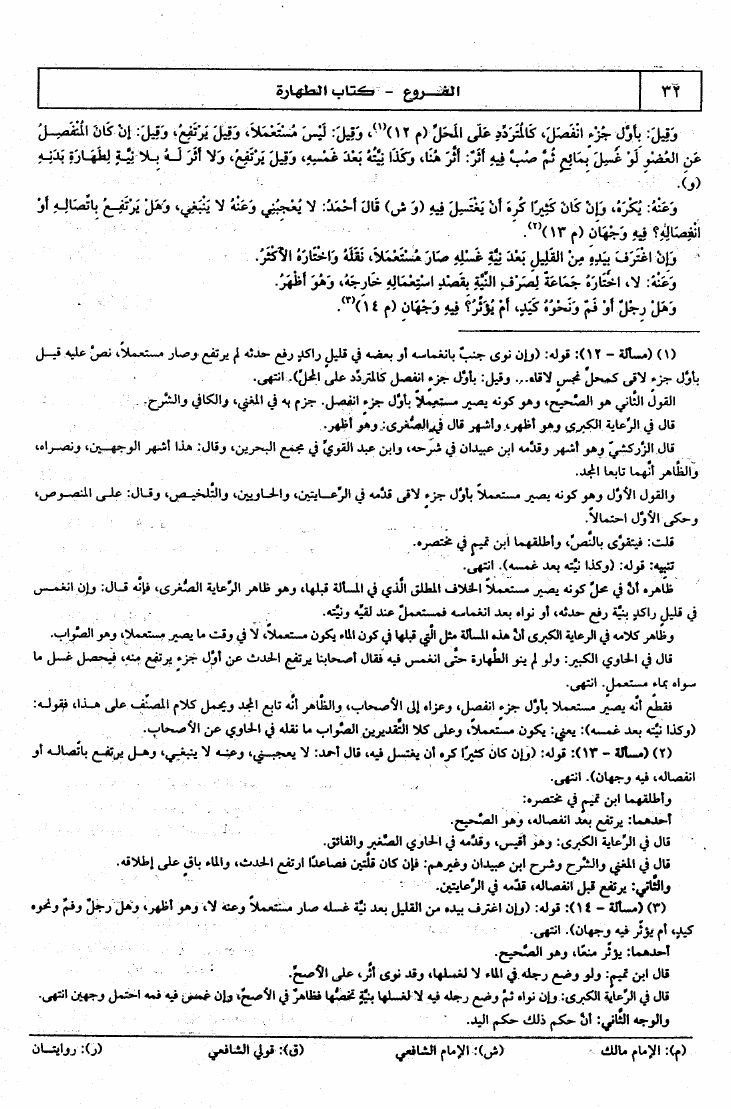 ٣٢ الفـــروع - كتاب الطهارة
وَقِيلَ: بِأَوَّلِ جُزْءٍ انْفَصَلَ، كَالْمُتَرَدِّدِ عَلَى الْمَحَلِّ (م ١٢)(١)، وَقِيلَ: لَيْسَ مُسْتَعْمَلاً، وَقِيلَ يَرْتَفِعُ، وَقِيلَ: إنْ كَانَ الْمُنْفَصِلُ
عَنِ الْعُضْوِ لَوْ غُسِلَ بِمَائِعٍ ثُمَّ صُبَّ فِيهِ أَثَّرَ: أَثَّرَ هُنَا، وَكَذَا نِيَّتُهُ بَعْدَ غَمْسِهِ، وَقِيلَ يَرْتَفِعُ، وَلَا أَثَرَ لَـهُ بِـلا نِيَّـةٍ لِطَهَارَةِ بَدَنِـهِ
(و).
وَعَنْهُ: يُكْرَهُ، وَإِنْ كَانَ كَثِيرًا كُرِهَ أَنْ يَغْتَسِلَ فِيهِ (و ش) قَالَ أَحْمَدُ: لَا يُعْجِبُنِي وَعَنْهُ لَا يَنْبَغِي، وَهَلْ يَرْتَفِـعُ بِاتِّصَالِـهِ أَوْ
انْفِصَالِهِ؟ فِيهِ وَجْهَانِ (م ١٣)(٢).
وَإِنْ اغْتَرَفَ بِيَدِهِ مِنْ الْقَلِيلِ بَعْدَ نِيَّةِ غَسْلِهِ صَارَ مُسْتَعْمَلاً، نَقَلَهُ وَاخْتَارَهُ الأَكْثَرُ.
وَعَنْهُ: لا، اخْتَارَهُ جَمَاعَةٌ لِصَرْفِ النِّيَّةِ بِقَصْدِ اسْتِعْمَالِهِ خَارِجَهُ، وَهُوَ أَظْهَرُ.
وَهَلْ رِجْلٌ أَوْ فَمٌ وَنَحْوُهُ كَيَدٍ، أَمْ يُؤَثِّرُ؟ فِيهِ وَجْهَانِ (م ١٤)(٣).
(١) (مسألة - ١٢): قوله: (وإن نوى جنبٌ بانغماسه أو بعضه في قليلٍ راكدٍ رفع حدثه لم يرتفع وصار مستعملاً، نصّ عليه قيـل
بأوّل جزءٍ لاقى كمحلٍّ نجسٍ لاقاه... وقيل: بأوّل جزءٍ انفصل كالمتردّد على المحلّ). انتهى.
القول الثّاني هو الصّحيح، وهو كونه يصير مستعملاً بأوّل جزءٍ انفصل. جزم به في المغني، والكافي والشّرح.
قال في الرّعاية الكبرى وهو أظهر، وأشهر قال في الصّغرى: وهو أظهر.
قال الزّركشيّ وهو أشهر وقدّمه ابن عبيدان في شرحه، وابن عبد القويّ في مجمع البحرين، وقال: هذا أشهر الوجهـين، ونصراه،
والظّاهر أنّهما تابعا المجد.
والقول الأوّل وهو كونه يصير مستعملاً بأوّل جزءٍ لاقى قدّمه في الرّعـايتين، والحـاويين، والتّلخيـص، وقـال: علـى المنصـوص،
وحكى الأوّل احتمالاً.
قلت: فيتقوّى بالنّصّ، وأطلقهما ابن تميمٍ في مختصره.
تنبيه: قوله: (وكذا نيّته بعد غمسه). انتهى.
ظاهره أنّ في محلّ كونه يصير مستعملاً الخلاف المطلق الّذي في المسألة قبلها، وهو ظاهر الرّعاية الصّغرى، فإنّه قـال: وإن انغمـس
في قليلٍ راكدٍ بنيّة رفع حدثه، أو نواه بعد انغماسه فمستعملٌ عند لقيّه ونيّته.
وظاهر كلامه في الرعاية الكبرى أنّ هذه المسألة مثل الّتي قبلها في كون الماء يكون مستعملاً، لا في وقت ما يصير مستعملا، وهو الصّواب.
قال في الحاوي الكبير: ولو لم ينو الطّهارة حتّى انغمس فيه فقال أصحابنا يرتفع الحدث عن أوّل جزءٍ يرتفع منه، فيحصل غسل ما
سواه بماءٍ مستعملٍ. انتهى.
فقطع أنّه يصير مستعملا بأوّل جزءٍ انفصل، وعزاه إلى الأصحاب، والظّاهر أنّه تابع المجد ويحمل كلام المصنّف على هـذا، فقولـه:
(وكذا نيّته بعد غمسه): يعني: يكون مستعملاً، وعلى كلا التّقديرين الصّواب ما نقله في الحاوي عن الأصحاب.
(٢) (مسألة - ١٣): قوله: (وإن كان كثيرًا كره أن يغتسل فيه، قال أحمد: لا يعجبـني، وعنـه لا ينبغـي، وهـل يرتفـع باتّصالـه أو
انفصاله، فيه وجهان). انتهى.
وأطلقهما ابن تميمٍ في مختصره:
أحدهما: يرتفع بعد انفصاله، وهو الصّحيح.
قال في الرّعاية الكبرى: وهو أقيس، وقدّمه في الحاوي الصّغير والفائق.
قال في المغني والشّرح وشرح ابن عبيدان وغيرهم: فإن كان قلّتين فصاعدًا ارتفع الحدث، والماء باقٍ على إطلاقه.
والثّاني: يرتفع قبل انفصاله، قدّمه في الرّعايتين.
(٣) (مسألة - ١٤): قوله: (وإن اغترف بيده من القليل بعد نيّة غسله صار مستعملاً وعنه لا، وهو أظهر، وهل رجلٌ وفمٌ ونحوه
كيدٍ، أم يؤثّر فيه وجهان). انتهى.
أحدهما: يؤثّر منعًا، وهو الصّحيح.
قال ابن تميمٍ: ولو وضع رجله في الماء لا لغسلها، وقد نوى أثّر، على الأصحّ.
قال في الرّعاية الكبرى: وإن نواه ثمّ وضع رجله فيه لا لغسلها بنيّةٍ تخصّها فظاهرٌ في الأصحّ، وإن غمـس فيه فمه احتمل وجهين انتهى.
والوجه الثّاني: أنّ حكم ذلك حكم اليد.
(م): الإمام مالك (ش): الإمام الشافعي (ق): قولي الشافعي (ر): روايتـان